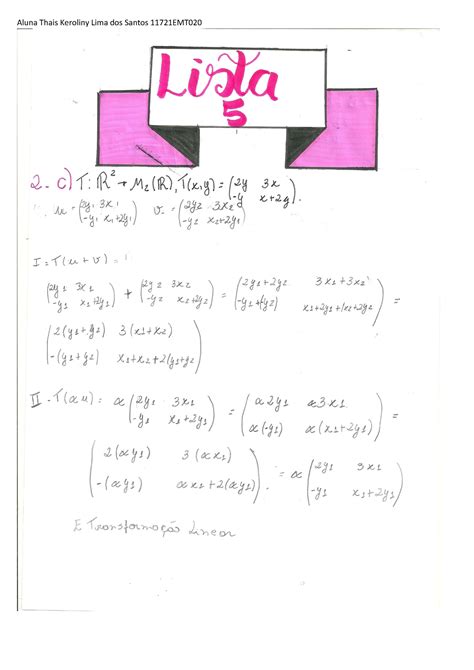 Aluna Thais Keroliny Lima dos Santos 11721EMT020
Lista
5
2- c) T: ℝ² → M₂(ℝ), T(x,y) = (2y 3x
-y x+2y).
u = (2y₁ 3x₁ v = (2y₂ 3x₂
-y₁ x₁+2y₁) -y₂ x₂+2y₂)
I = T(u+v) =
(2y₁ 3x₁ + (2y₂ 3x₂ = (2y₁+2y₂ 3x₁+3x₂ =
-y₁ x₁+2y₁) -y₂ x₂+2y₂) (-y₁)+(-y₂) x₁+2y₁+(x₂+2y₂)
(2(y₁+y₂) 3(x₁+x₂)
-(y₁+y₂) x₁+x₂+2(y₁+y₂))
II - T(αu) = α(2y₁ 3x₁ = (α2y₁ α3x₁ =
-y₁ x₁+2y₁) α(-y₁) α(x₁+2y₁))
(2(αy₁) 3(αx₁) = α(2y₁ 3x₁
-(αy₁) αx₁+2(αy₁)). -y₁ x₁+2y₁)
É Transformação Linear